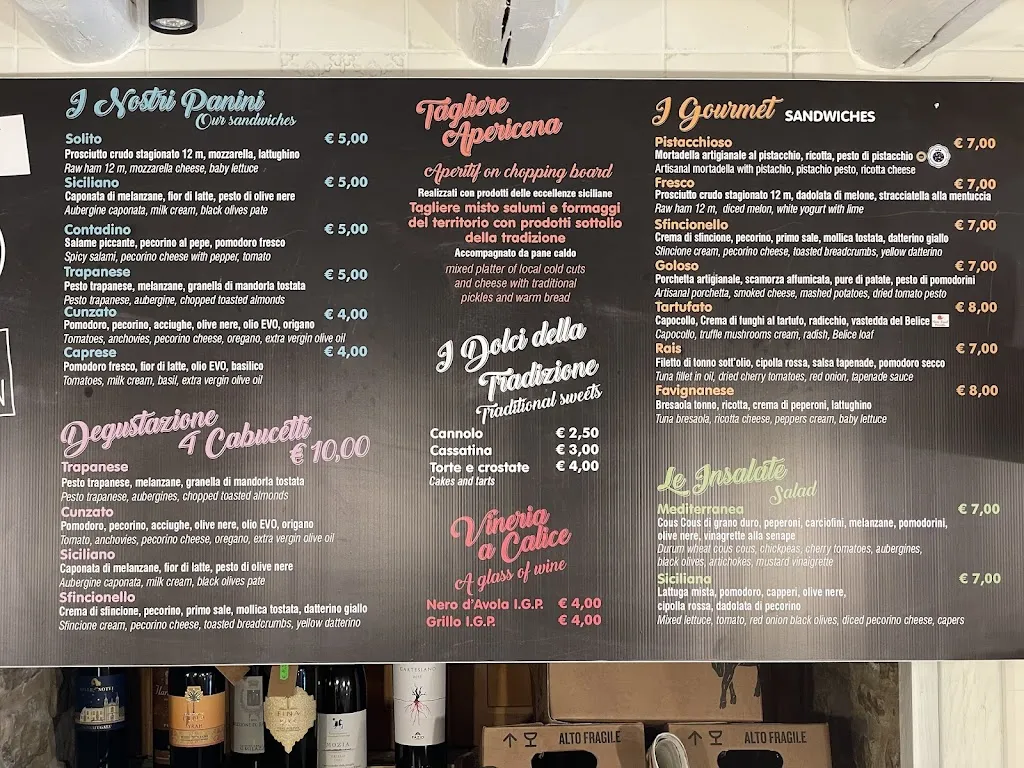 I Nostri Panini
Our sandwiches
Solito € 5,00
Prosciutto crudo stagionato 12 m, mozzarella, lattughino
Raw ham 12 m, mozzarella cheese, baby lettuce
Siciliano € 5,00
Caponata di melanzane, fior di latte, pesto di olive nere
Aubergine caponata, milk cream, black olives pate
Contadino € 5,00
Salame piccante, pecorino al pepe, pomodoro fresco
Spicy salami, pecorino cheese with pepper, tomato
Trapanese € 5,00
Pesto trapanese, melanzane, granella di mandorla tostata
Pesto trapanese, aubergine, chopped toasted almonds
Cunzato € 4,00
Pomodoro, pecorino, acciughe, olive nere, olio EVO, origano
Tomatoes, anchovies, pecorino cheese, oregano, extra vergin olive oil
Caprese € 4,00
Pomodoro fresco, fior di latte, olio EVO, basilico
Tomatoes, milk cream, basil, extra vergin olive oil
Degustazione
4 Cabucetti
€ 10,00
Trapanese
Pesto trapanese, melanzane, granella di mandorla tostata
Pesto trapanese, aubergines, chopped toasted almonds
Cunzato
Pomodoro, pecorino, acciughe, olive nere, olio EVO, origano
Tomato, anchovies, pecorino cheese, oregano, extra vergin olive oil
Siciliano
Caponata di melanzane, fior di latte, pesto di olive nere
Aubergine caponata, milk cream, black olives pate
Sfincionello
Crema di sfincione, pecorino, primo sale, mollica tostata, datterino giallo
Sfincione cream, pecorino cheese, toasted breadcrumbs, yellow datterino
Tagliere
Apericena
Aperitif on chopping board
Realizzati con prodotti delle eccellenze siciliane
Tagliere misto salumi e formaggi
del territorio con prodotti sottolio
della tradizione
Accompagnato da pane caldo
mixed platter of local cold cuts
and cheese with traditional
pickles and warm bread
I Dolci della
Tradizione
Traditional sweets
Cannolo € 2,50
Cassatina € 3,00
Torte e crostate € 4,00
Cakes and tarts
Vineria
a Calice
A glass of wine
Nero d'Avola I.G.P. € 4,00
Grillo I.G.P. € 4,00
I Gourmet SANDWICHES
Pistacchioso € 7,00
Mortadella artigianale al pistacchio, ricotta, pesto di pistacchio
Artisanal mortadella with pistachio, pistachio pesto, ricotta cheese
Fresco € 7,00
Prosciutto crudo stagionato 12 m, dadolata di melone, stracciatella alla mentuccia
Raw ham 12 m, diced melon, white yogurt with lime
Sfincionello € 7,00
Crema di sfincione, pecorino, primo sale, mollica tostata, datterino giallo
Sfincione cream, pecorino cheese, toasted breadcrumbs, yellow datterino
Goloso € 7,00
Porchetta artigianale, scamorza affumicata, pure di patate, pesto di pomodorini
Artisanal porchetta, smoked cheese, mashed potatoes, dried tomato pesto
Tartufato € 8,00
Capocollo, Crema di funghi al tartufo, radicchio, vastedda del Belice
Capocollo, truffle mushrooms cream, radish, Belice loaf
Rais € 7,00
Filetto di tonno sott'olio, cipolla rossa, salsa tapenade, pomodoro secco
Tuna fillet in oil, dried cherry tomatoes, red onion, tapenade sauce
Favignanese € 8,00
Bresaola tonno, ricotta, crema di peperoni, lattughino
Tuna bresaola, ricotta cheese, peppers cream, baby lettuce
Le Insalate
Salad
Mediterranea € 7,00
Cous Cous di grano duro, peperoni, carciofini, melanzane, pomodorini,
olive nere, vinagrette alla senape
Durum wheat cous cous, chickpeas, cherry tomatoes, aubergines,
black olives, artichokes, mustard vinaigrette
Siciliana € 7,00
Lattuga mista, pomodoro, capperi, olive nere,
cipolla rossa, dadolata di pecorino
Mixed lettuce, tomato, red onion black olives, diced pecorino cheese, capers
CARTESIANO
MOZIA
ALTO FRAGILE
ALTO FRAGILE